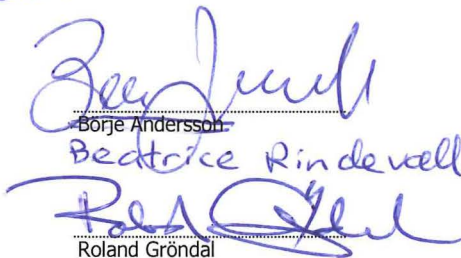 Börje Andersson
Beatrice Rindevall
Roland Gröndal